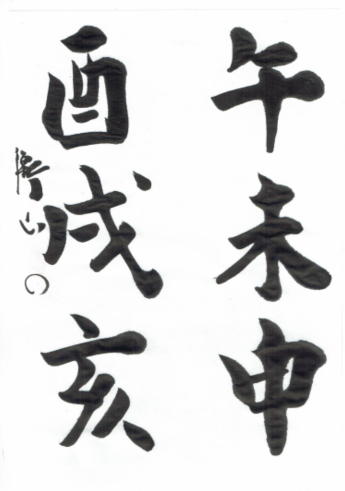 午未申
酉戌亥